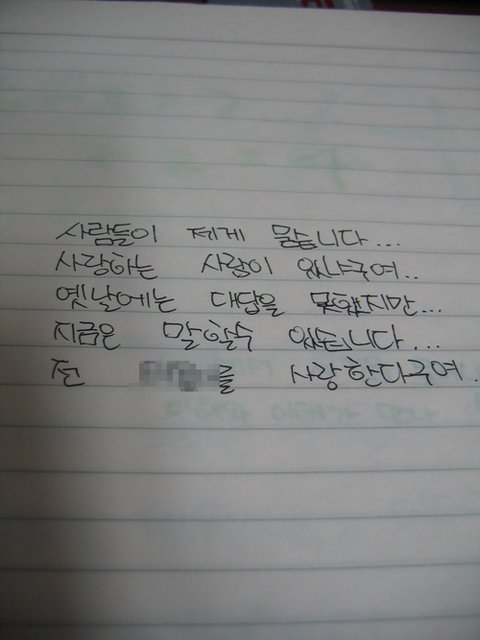 사람들이 제게 묻습니다...
사랑하는 사람이 있냐구여..
옛날에는 대답을 못했지만...
지금은 말할수 있습니다...
전 를 사랑한다구여.